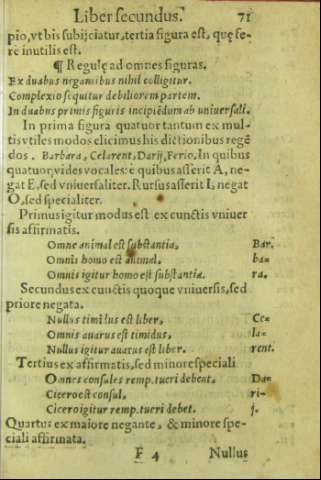 Liber secundus. 71
pio, vt bis subijciatur, tertia figura est, quę se-
re inutilis est.
¶ Regulę ad omnes figuras.
Ex duabus negantibus nihil colligitur.
Complexio sequitur debiliorem partem.
In duabus primis figuris incipiēdum ab uniuersali.
In prima figura quatuor tantum ex mul-
tis vtiles modos elicimus his dictionibus regē
dos. Barbara, Celarent, Darij, Ferio, In quibus
quatuor, vides vocales: è quibus asserit A, ne-
gat E, sed vniuersaliter. Rursus asserit I, negat
O, sed specialiter.
Primus igitur modus est ex cunctis vniuer
sis affirmatis.
Omne animal est substantia, Bar.
Omnis homo est animal, ba-
Omnis igitur homo est substantia. ra.
Secundus ex cunctis quoque vniuersis, sed
priore negata.
Nullus timidus est liber, Ce-
Omnis auarus est timidus, la-
Nullus igitur auarus est liber. rent.
Tertius ex affirmatis, sed minore speciali
Omnes consules remp. tueri debent, Da-
Cicero est consul, ri-
Cicero igitur remp. tueri debet. j.
Quartus ex maiore negante, & minore spe-
ciali affirmata.
F 4 Nullus